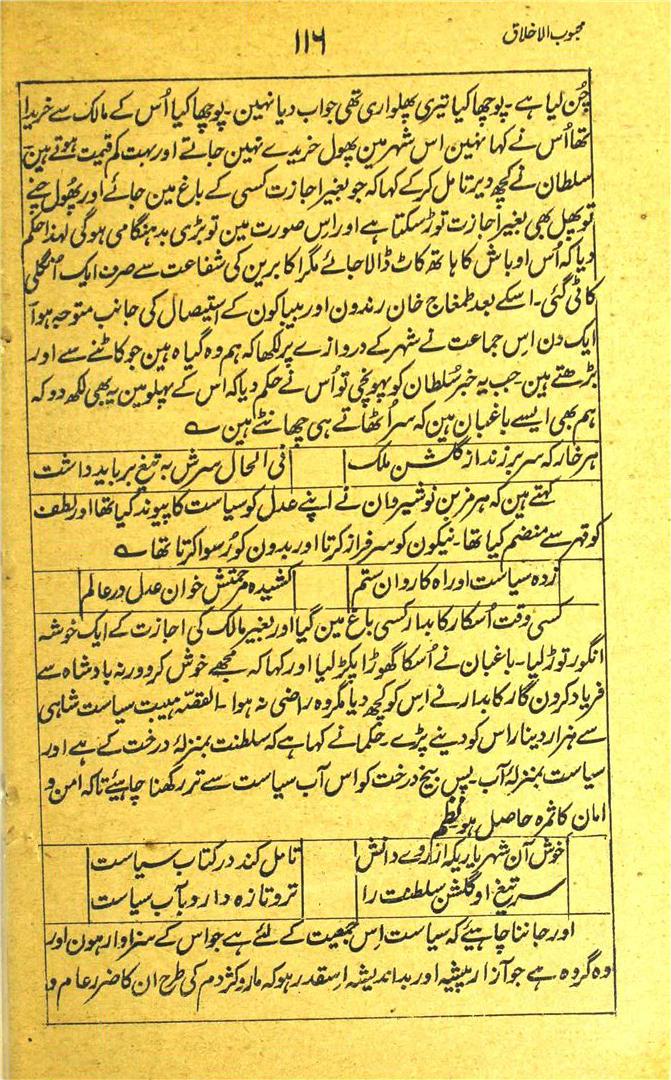 محبوب الاخلاق
۱۱۶
چُن لیا ہے۔ پوچھا کیا تیری پھلواری تھی جواب دیا نہین۔ پوچھا کیا اُس کے مالک سے خریدا
تھا اُس نے کہا نہین اس شہر مین پھول خریدے نہین جاتے اور بہت کم قیمت ہوتے ہین
سلطان نے کچھ دیر تامل کرکے کہا کہ جو بغیر اجازت کسی کے باغ مین جائے اور پھول چنے
تو پھل بھی بغیر اجازت توڑ سکتا ہے اور اس صورت مین تو بڑی بدہنگامی ہوگی لہذا حکم
دیا کہ اُس اوباش کا ہاتھ کاٹ ڈالا جائے مگر اکابرین کی شفاعت سے صرف ایک اُنگلی
کاٹی گئی۔ اسکے بعد طمغاج خان رندون اور بیباکون کے استیصال کی جانب متوجہ ہوا
ایک دن اس جماعت نے شہر کے دروازے پر لکھا کہ ہم وہ گیاہ ہین جو کاٹنے سے اور
بڑھتے ہین۔ جب یہ خبر سُلطان کو پہونچی تو اُس نے حکم دیا کہ اس کے پہلو مین یہ بھی لکھ دو کہ
ہم بھی ایسے باغبان ہین کہ سر اُٹھاتے ہی چھانٹتے ہین ؎
ہر خار کہ سر برزند از گلشن ملک فی الحال سرش بہ تیغ بر باید داشت
کہتے ہین کہ ہرمز بن نوشیروان نے اپنے عدل کو سیاست کا پیوند کیا تھا اور لطف
کو قہر سے منضم کیا تھا۔ نیکون کو سرفراز کرتا اور بدون کو رُسوا کرتا تھا ؎
زدہ سیاست او راہ کاروان ستم کشیدہ مرحمتش خوان عدل در عالم
کسی وقت اُسکا رکابدار کسی باغ مین گیا اور بغیر مالک کی اجازت کے ایک خوشہ
انگور توڑ لیا۔ باغبان نے اُسکا گھوڑا پکڑ لیا اور کہا کہ مجھے خوش کرو ورنہ بادشاہ سے
فریاد کرون گا رکابدار نے اس کو کچھ دیا مگر وہ راضی نہ ہوا۔ القصّہ ہیبت سیاست شاہی
سے ہزار دینار اس کو دینے پڑے۔ حکما نے کہا ہے کہ سلطنت بمنزلۂ درخت کے ہے اور
سیاست بمنزلۂ آب۔ پس بیخ درخت کو اس آب سیاست سے تر رکھنا چاہیئے تاکہ امن و
امان کا ثمرہ حاصل ہو نظم
خوش آن شہریاریکہ از روے دانش تامل کند در کتاب سیاست
سر تیغ او گلشن سلطنت را تر و تازہ دارد بآب سیاست
اور جاننا چاہیئے کہ سیاست اس جمعیت کے لئے ہے جو اس کے سزاوار ہون اور
وہ گروہ ہے جو آزار پیشہ اور بد اندیشہ اسقدر ہو کہ مار و کژدم کی طرح ان کا ضرر عام و